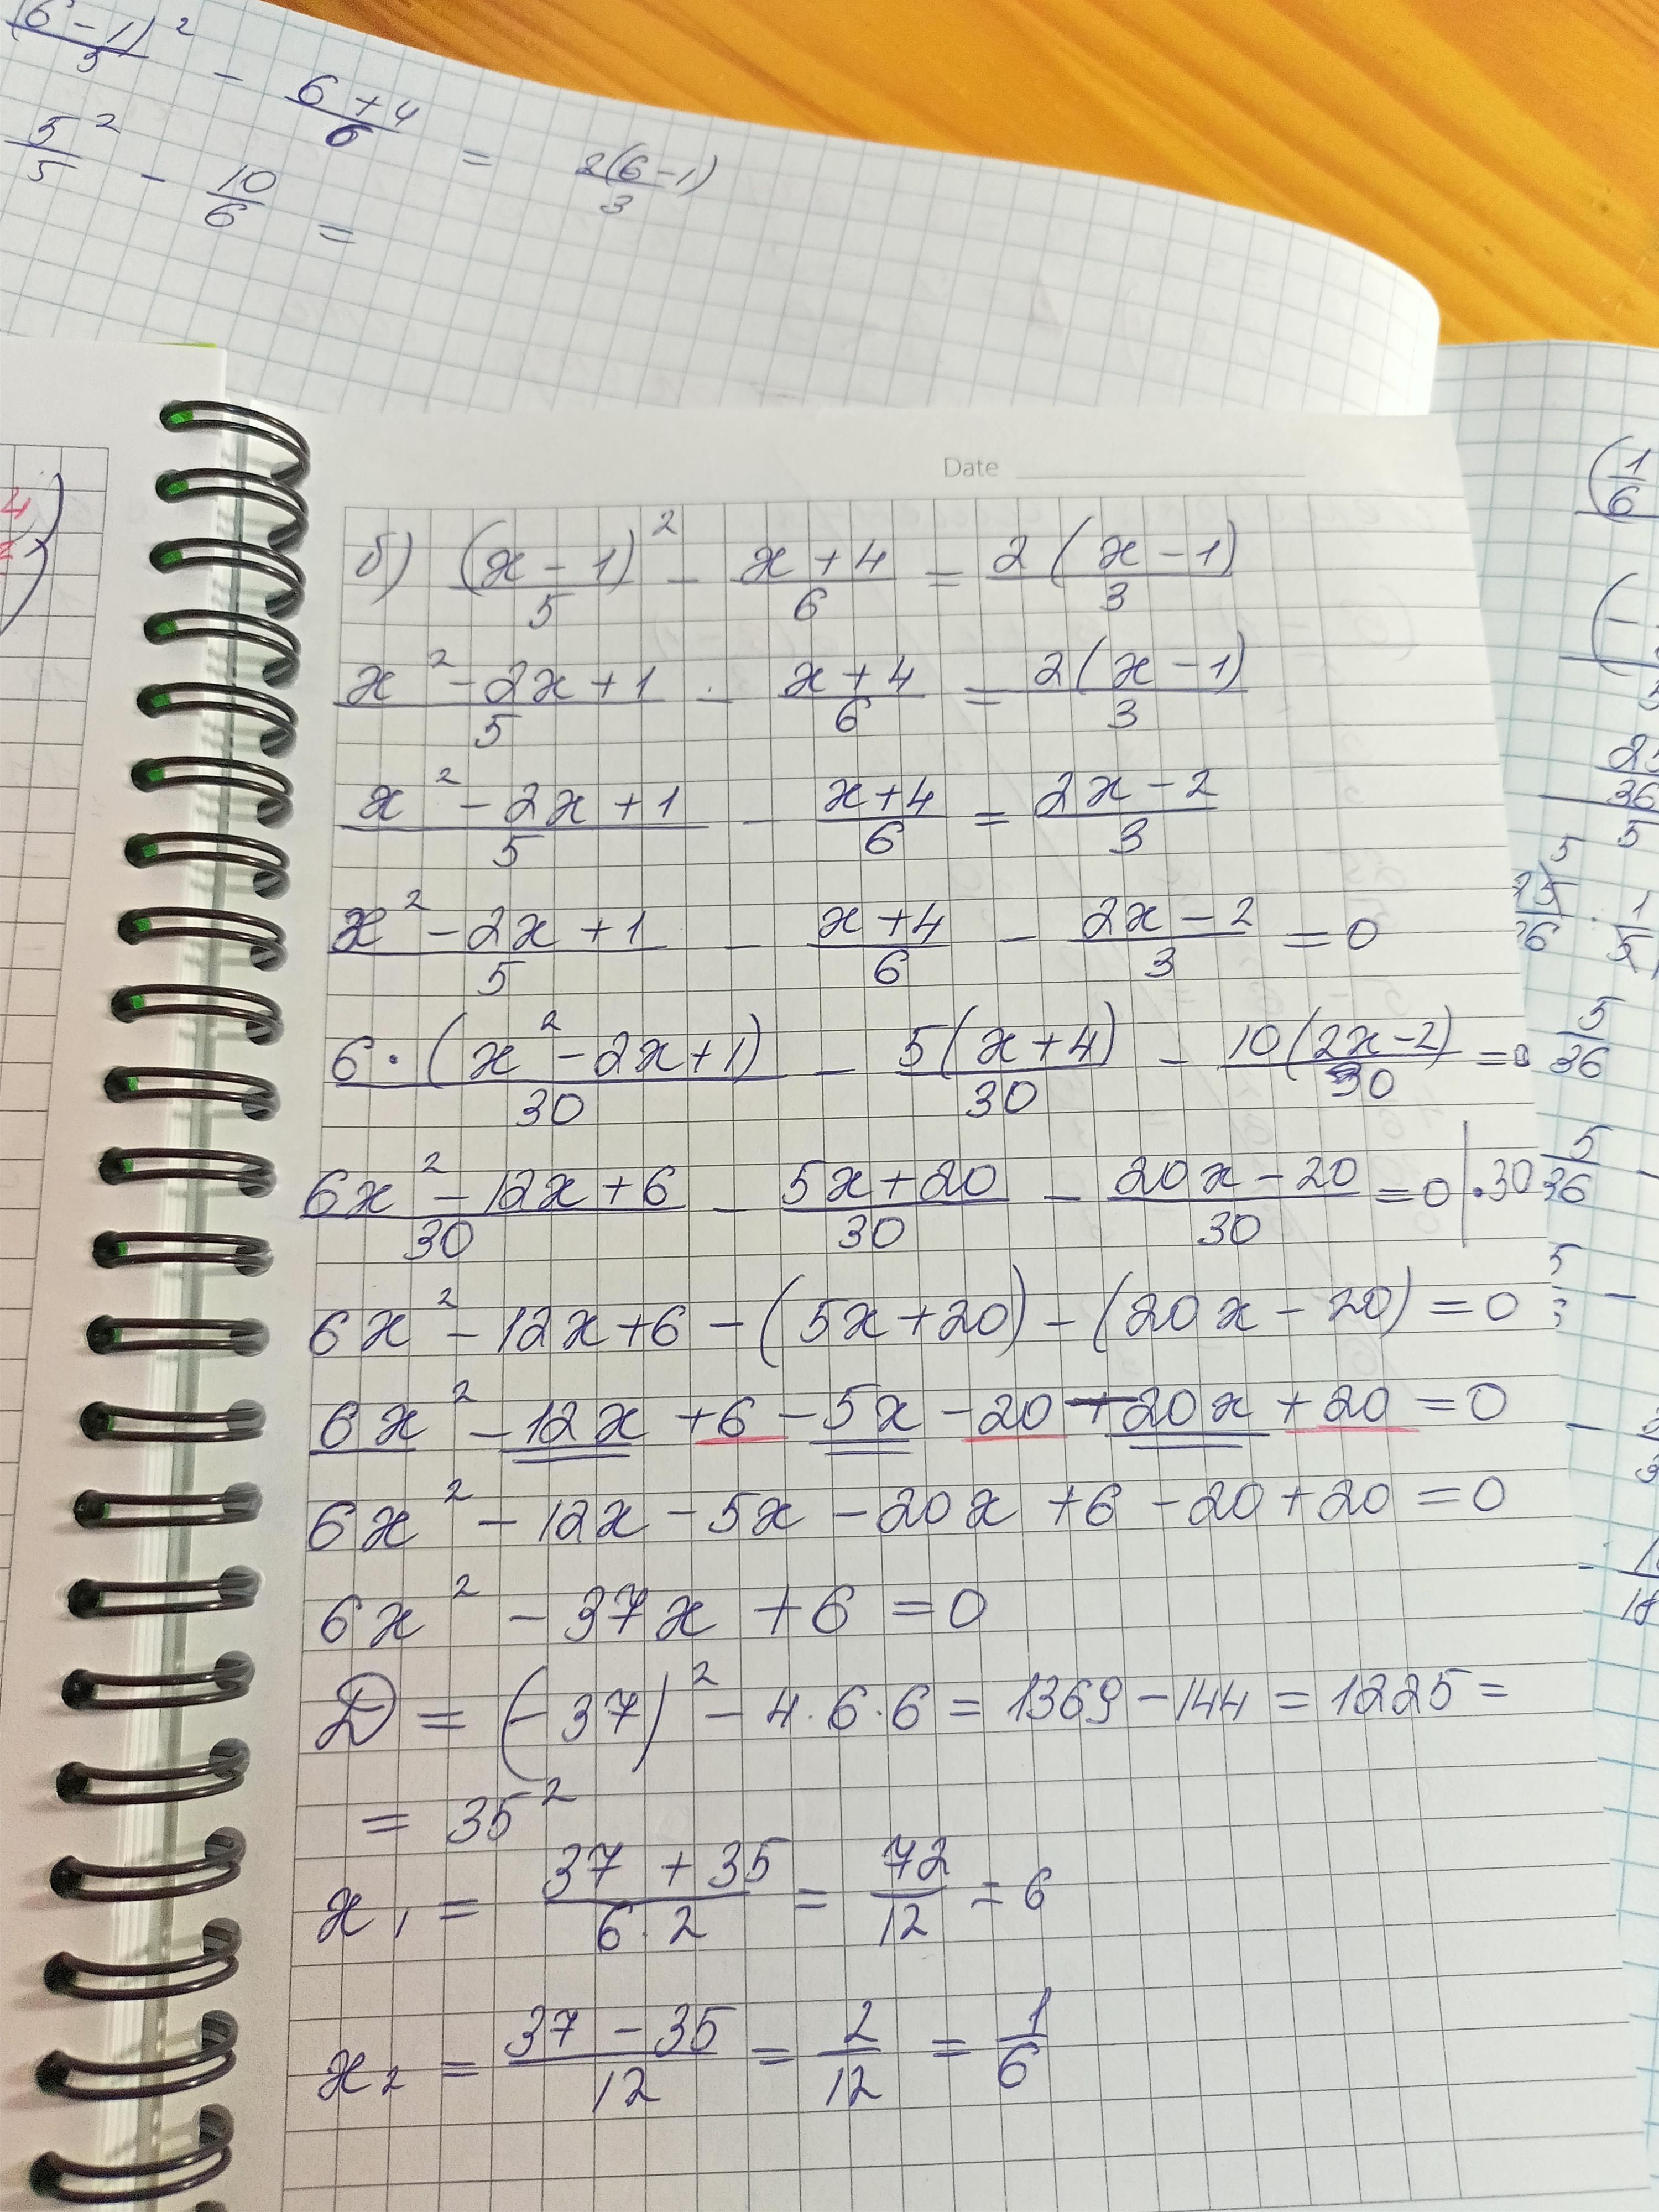 (6-1)²/5 - (6+4)/6 = 2(6-1)/3
5²/5 - 10/6 =
Date
б) (x-1)²/5 - (x+4)/6 = 2(x-1)/3
(x²-2x+1)/5 - (x+4)/6 = 2(x-1)/3
(x²-2x+1)/5 - (x+4)/6 = (2x-2)/3
(x²-2x+1)/5 - (x+4)/6 - (2x-2)/3 = 0
6·(x²-2x+1)/30 - 5(x+4)/30 - 10(2x-2)/30 = 0
(6x²-12x+6)/30 - (5x+20)/30 - (20x-20)/30 = 0 |·30
6x²-12x+6-(5x+20)-(20x-20)=0
6x²-12x+6-5x-20-20x+20=0
6x²-12x-5x-20x+6-20+20=0
6x²-37x+6=0
D=(-37)²-4·6·6=1369-144=1225=
=35²
x₁ = (37+35)/(6·2) = 72/12 = 6
x₂ = (37-35)/12 = 2/12 = 1/6
(1/6
5/36
5/36